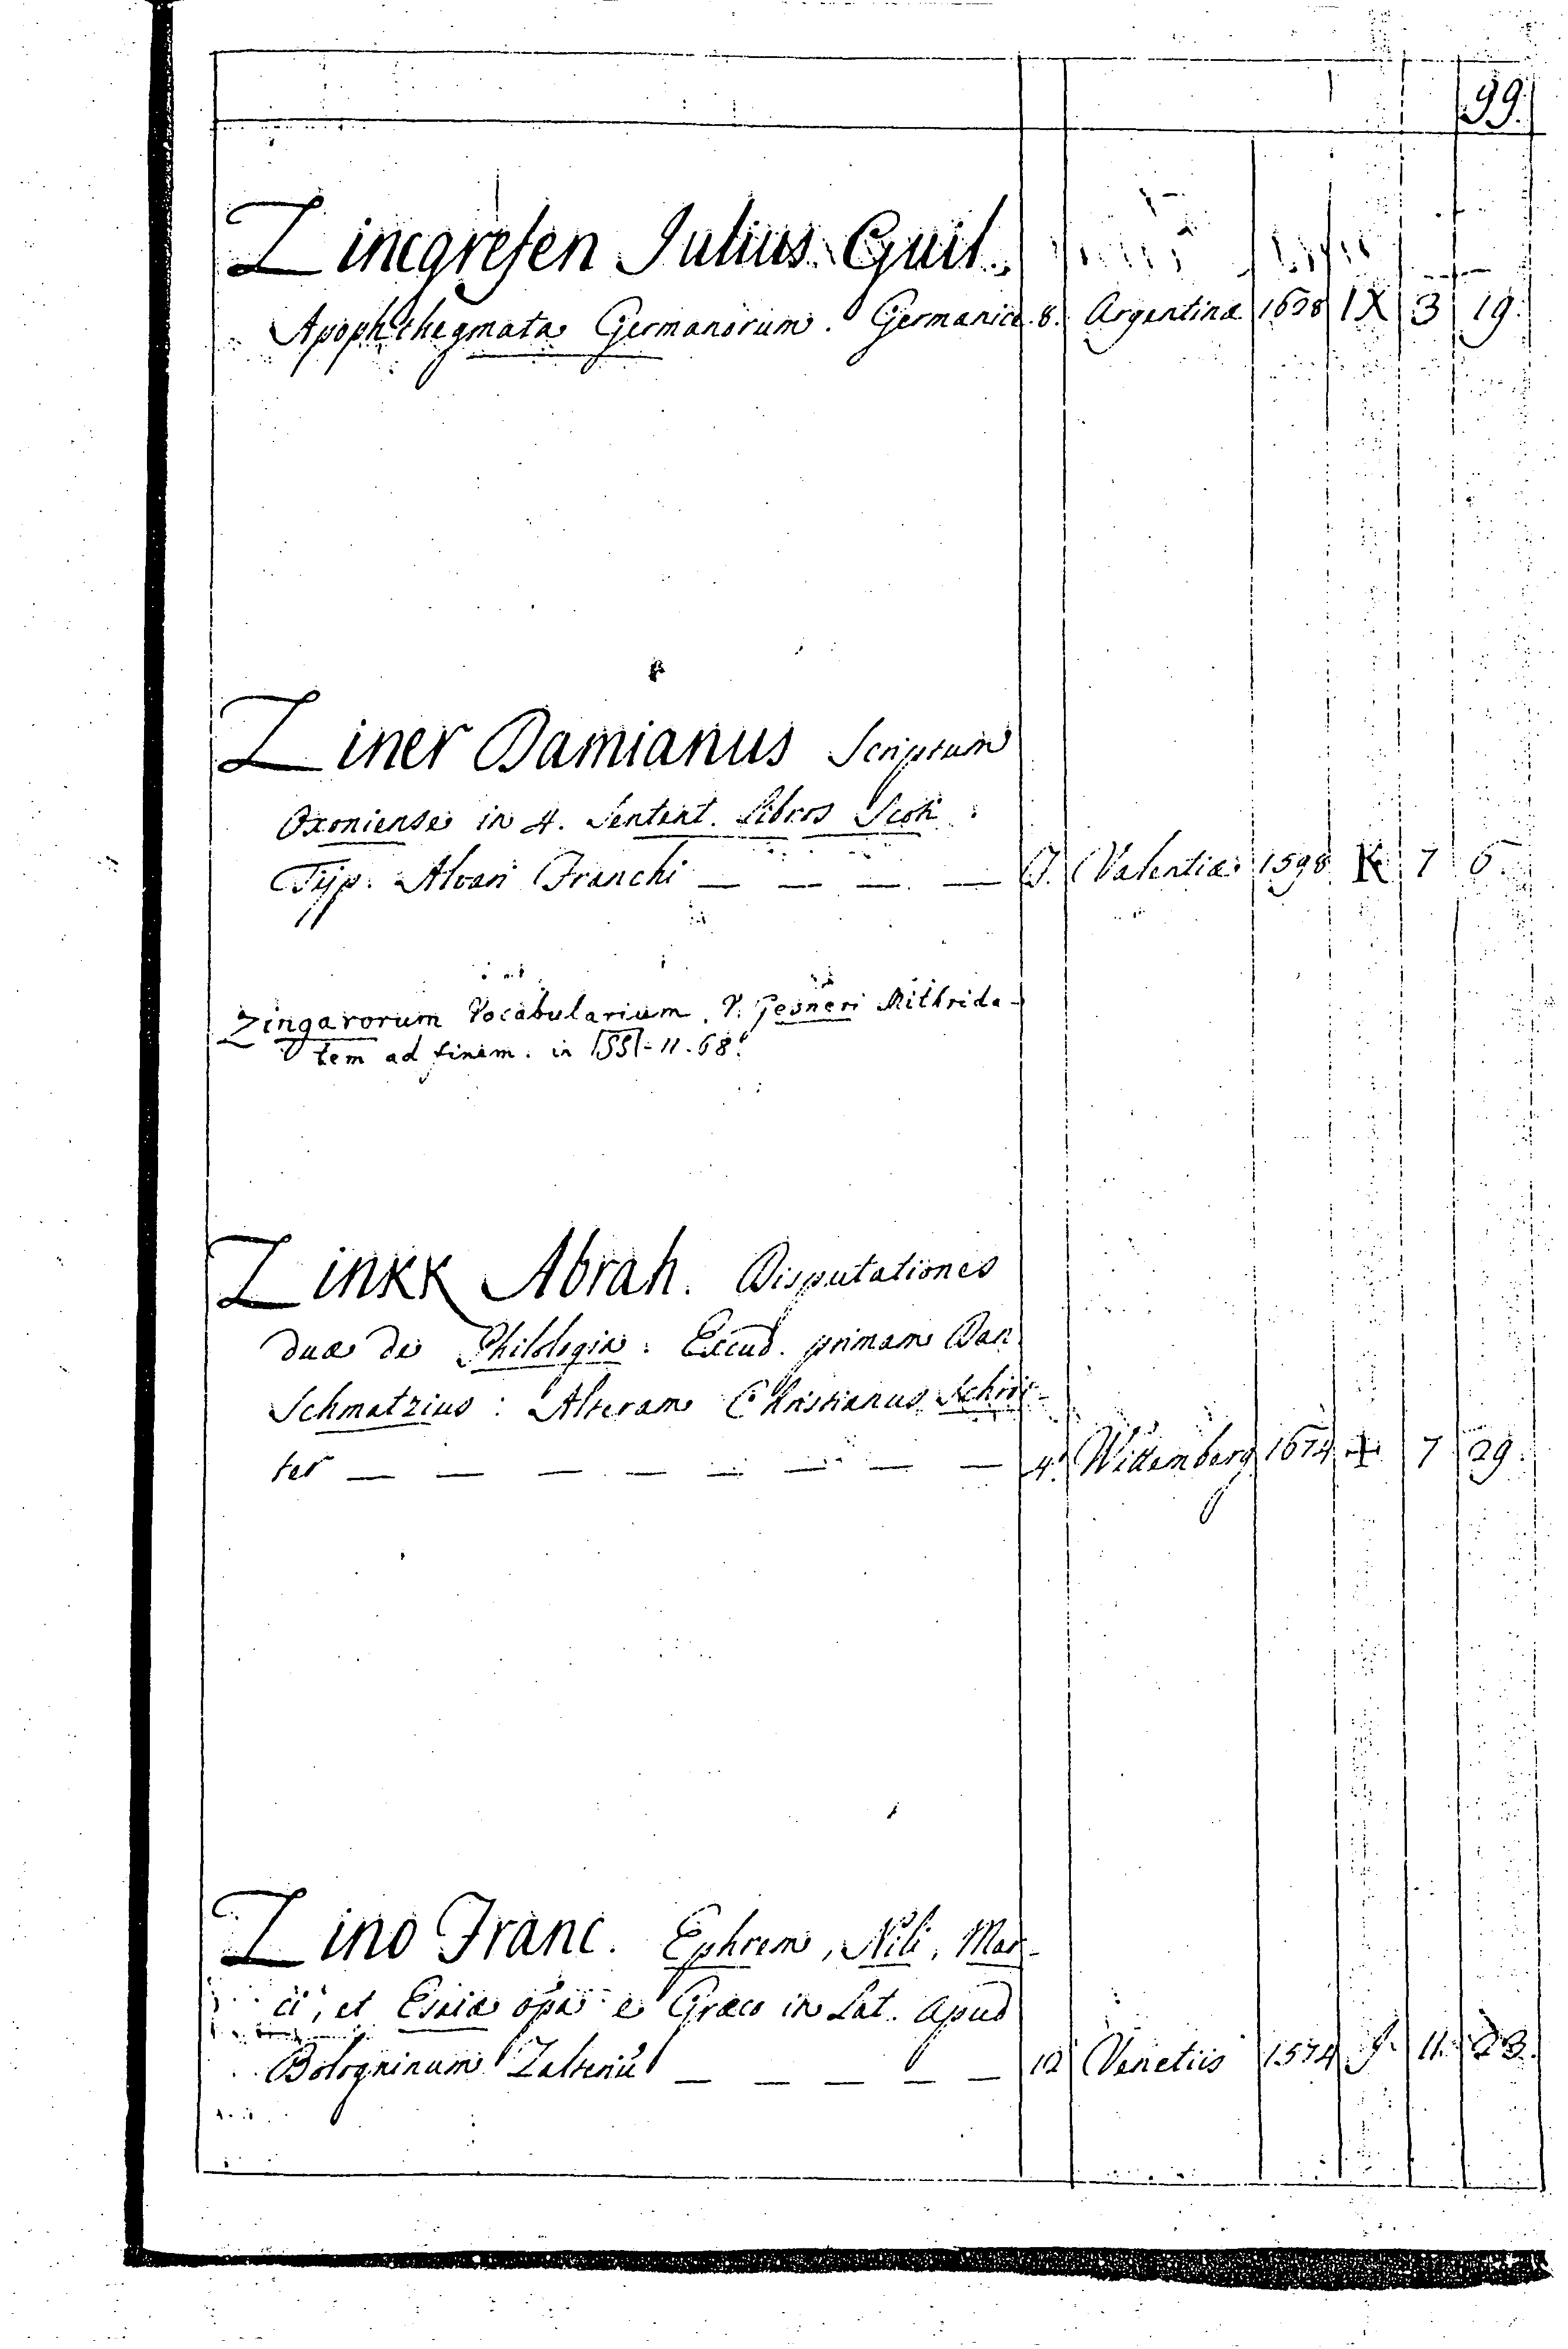 99.
Zincgrefen Julius Guil.,
Apophthegmata Germanorum. Germanice. 8. Argentinæ 1628 IX 3 19.
Ziner Damianus Scriptum
Oxoniense in 4. Sentent. Libros Scoti.
Typ. Alvari Franchi — — — — f. Valentiæ 1598 K 7 6.
Zingarorum Vocabularium. V. Gesneri Mithrida-
tem ad finem. in SS - 11. 68.
Zinkk Abrah. Disputationes
duæ de Philologia: Excud. primam Dan
Schmatzius: Alteram Christianus Schröe-
ter — — — — — — — — 4. Wittemberg 1674 + 7 29.
Zino Franc. Ephrem, Nili, Mar-
ci, et Esaiæ opa e Græco in Lat. Apud
Bologninum Zalteriū — — — — — 12 Venetiis 1574 J. 11. 23.